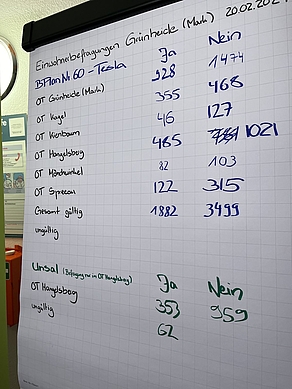 Einwohnerbefragungen Grünheide (Mark) 20.02.202
BPlan Nr. 60 – Tesla Ja Nein
OT Grünheide (Mark) 928 1474
OT Kagel 355 468
OT Kienbaum 46 127
OT Hangelsberg 485 1021
OT Mönchwinkel 82 103
OT Spreeau 122 315
Gesamt gültig 1882 3499
ungültig
Unsal (Befragung nur in OT Hangelsberg) Ja Nein
OT Hangelsberg 353 959
ungültig 62